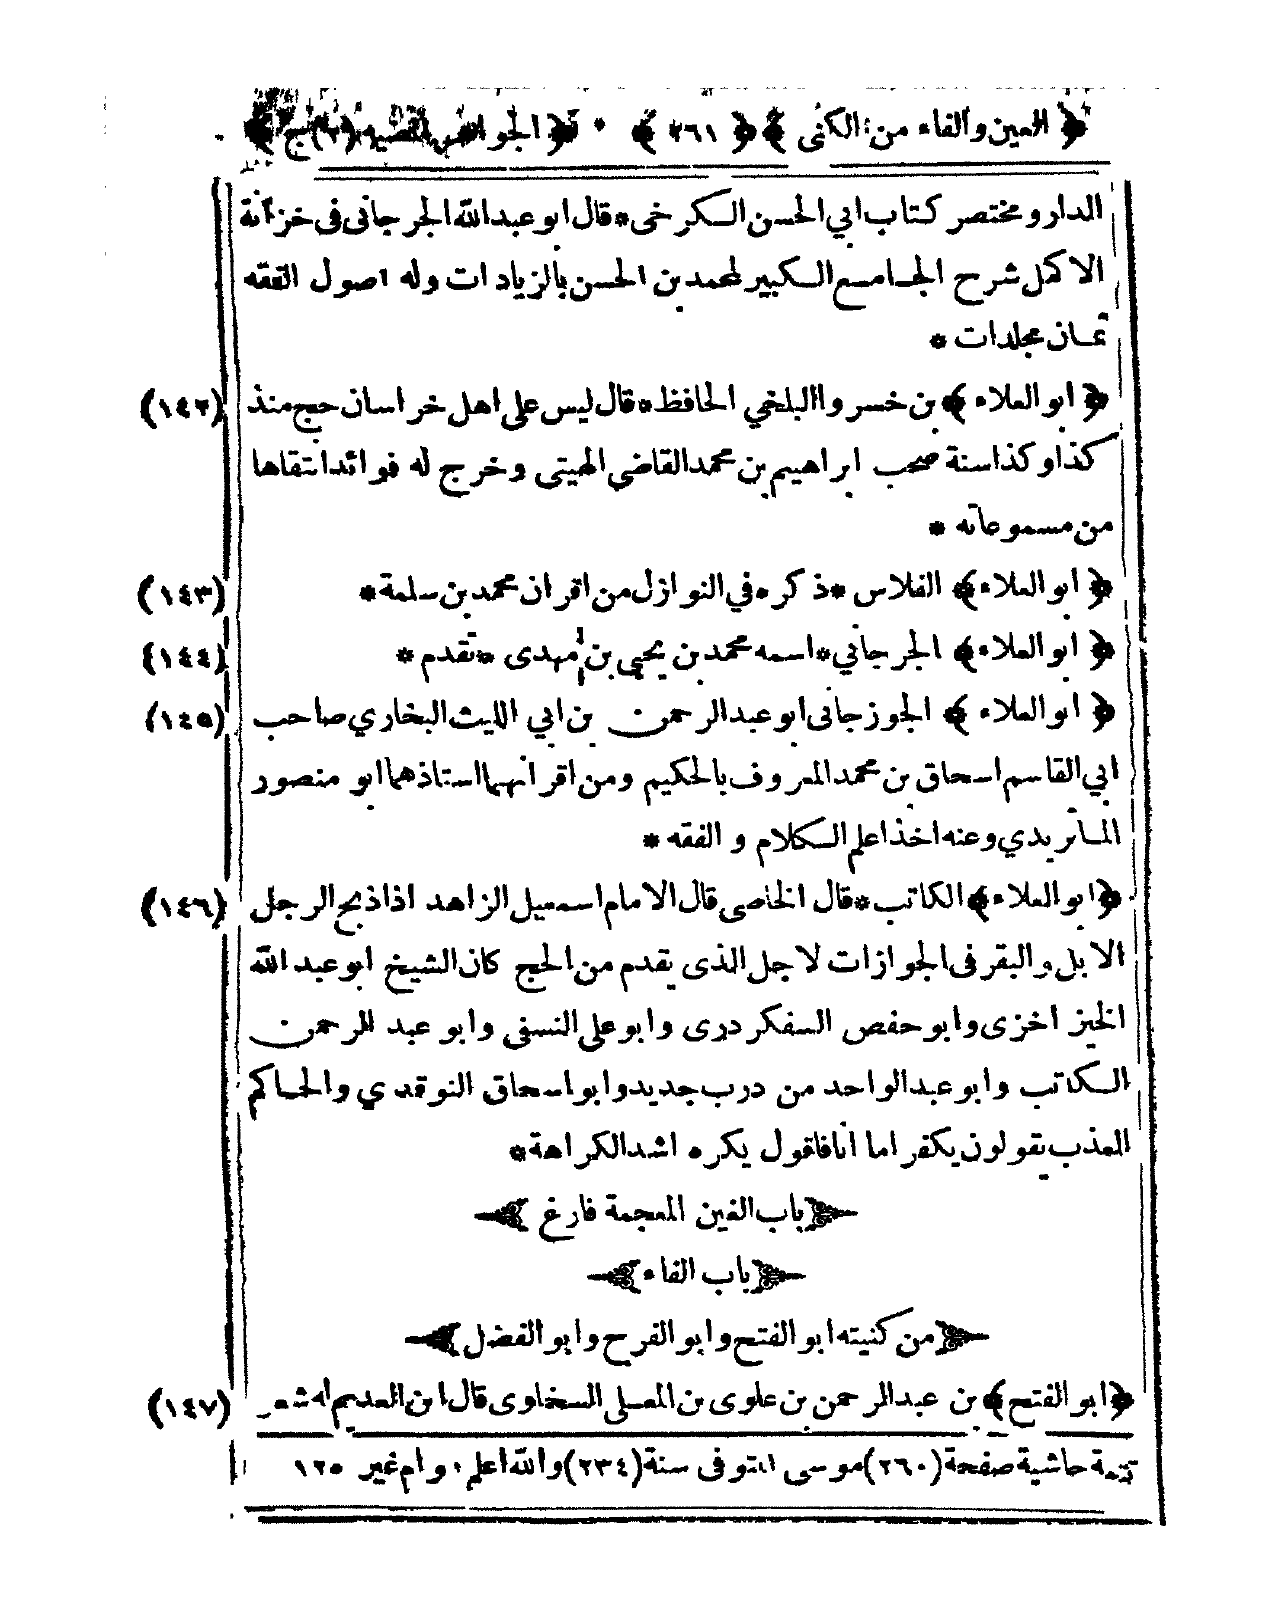 ﴿ العين والفاء من الكنى ﴾ ﴿ ٢٦١ ﴾ * ﴿ الجواهر المضيه (٢) ج ﴾
الدار ومختصر كتاب ابي الحسن الكرخى * قال ابو عبدالله الجرجانى فى خزانة
الاكمل شرح الجامع الكبير لمحمد بن الحسن بالزيادات وله اصول الفقه
ثمان مجلدات *
﴿ ابو العلاء ﴾ بن خسرو البلخي الحافظ * قال ليس على اهل خراسان حج منذ (١٤٢)
كذا وكذا سنة صحب ابراهيم بن محمد القاضى الهيتى وخرج له فوائد انتقاها
من مسموعاته *
﴿ ابو العلاء ﴾ الفلاس * ذكره في النوازل من اقران محمد بن سلمة * (١٤٣)
﴿ ابو العلاء ﴾ الجرجاني * اسمه محمد بن يحيى بن مهدى * تقدم * (١٤٤)
﴿ ابو العلاء ﴾ الجوزجانى ابو عبدالرحمن بن ابي الليث البخاري صاحب (١٤٥)
ابي القاسم اسحاق بن محمد المعروف بالحكيم ومن اقرانهما استاذهما ابو منصور
الماتريدي وعنه اخذا علم الكلام و الفقه *
﴿ ابو العلاء ﴾ الكاتب * قال الخاصى قال الامام اسمعيل الزاهد اذا ذبح الرجل (١٤٦)
الابل و البقر فى الجوازات لاجل الذى يقدم من الحج كان الشيخ ابو عبد الله
الخيزاخزى وابو حفص السفكردرى وابو على النسفى وابو عبد الرحمن
الكاتب وابو عبدالواحد من درب جديد وابو اسحاق النوقدي والحاكم
المذب يقولون يكفر اما انا فاقول يكره اشد الكراهة *
﴿ باب الغين المعجمة فارغ ﴾
﴿ باب الفاء ﴾
﴿ من كنيته ابو الفتح وابو الفرح وابو الفضل ﴾
﴿ ابو الفتح ﴾ بن عبدالرحمن بن علوى بن المعلى السخاوى قال ابن العديم له شعر (١٤٧)
تتمة حاشية صفحة (٢٦٠) موسى المتوفى سنة (٢٣٤) والله اعلم وام غير ١٢٥